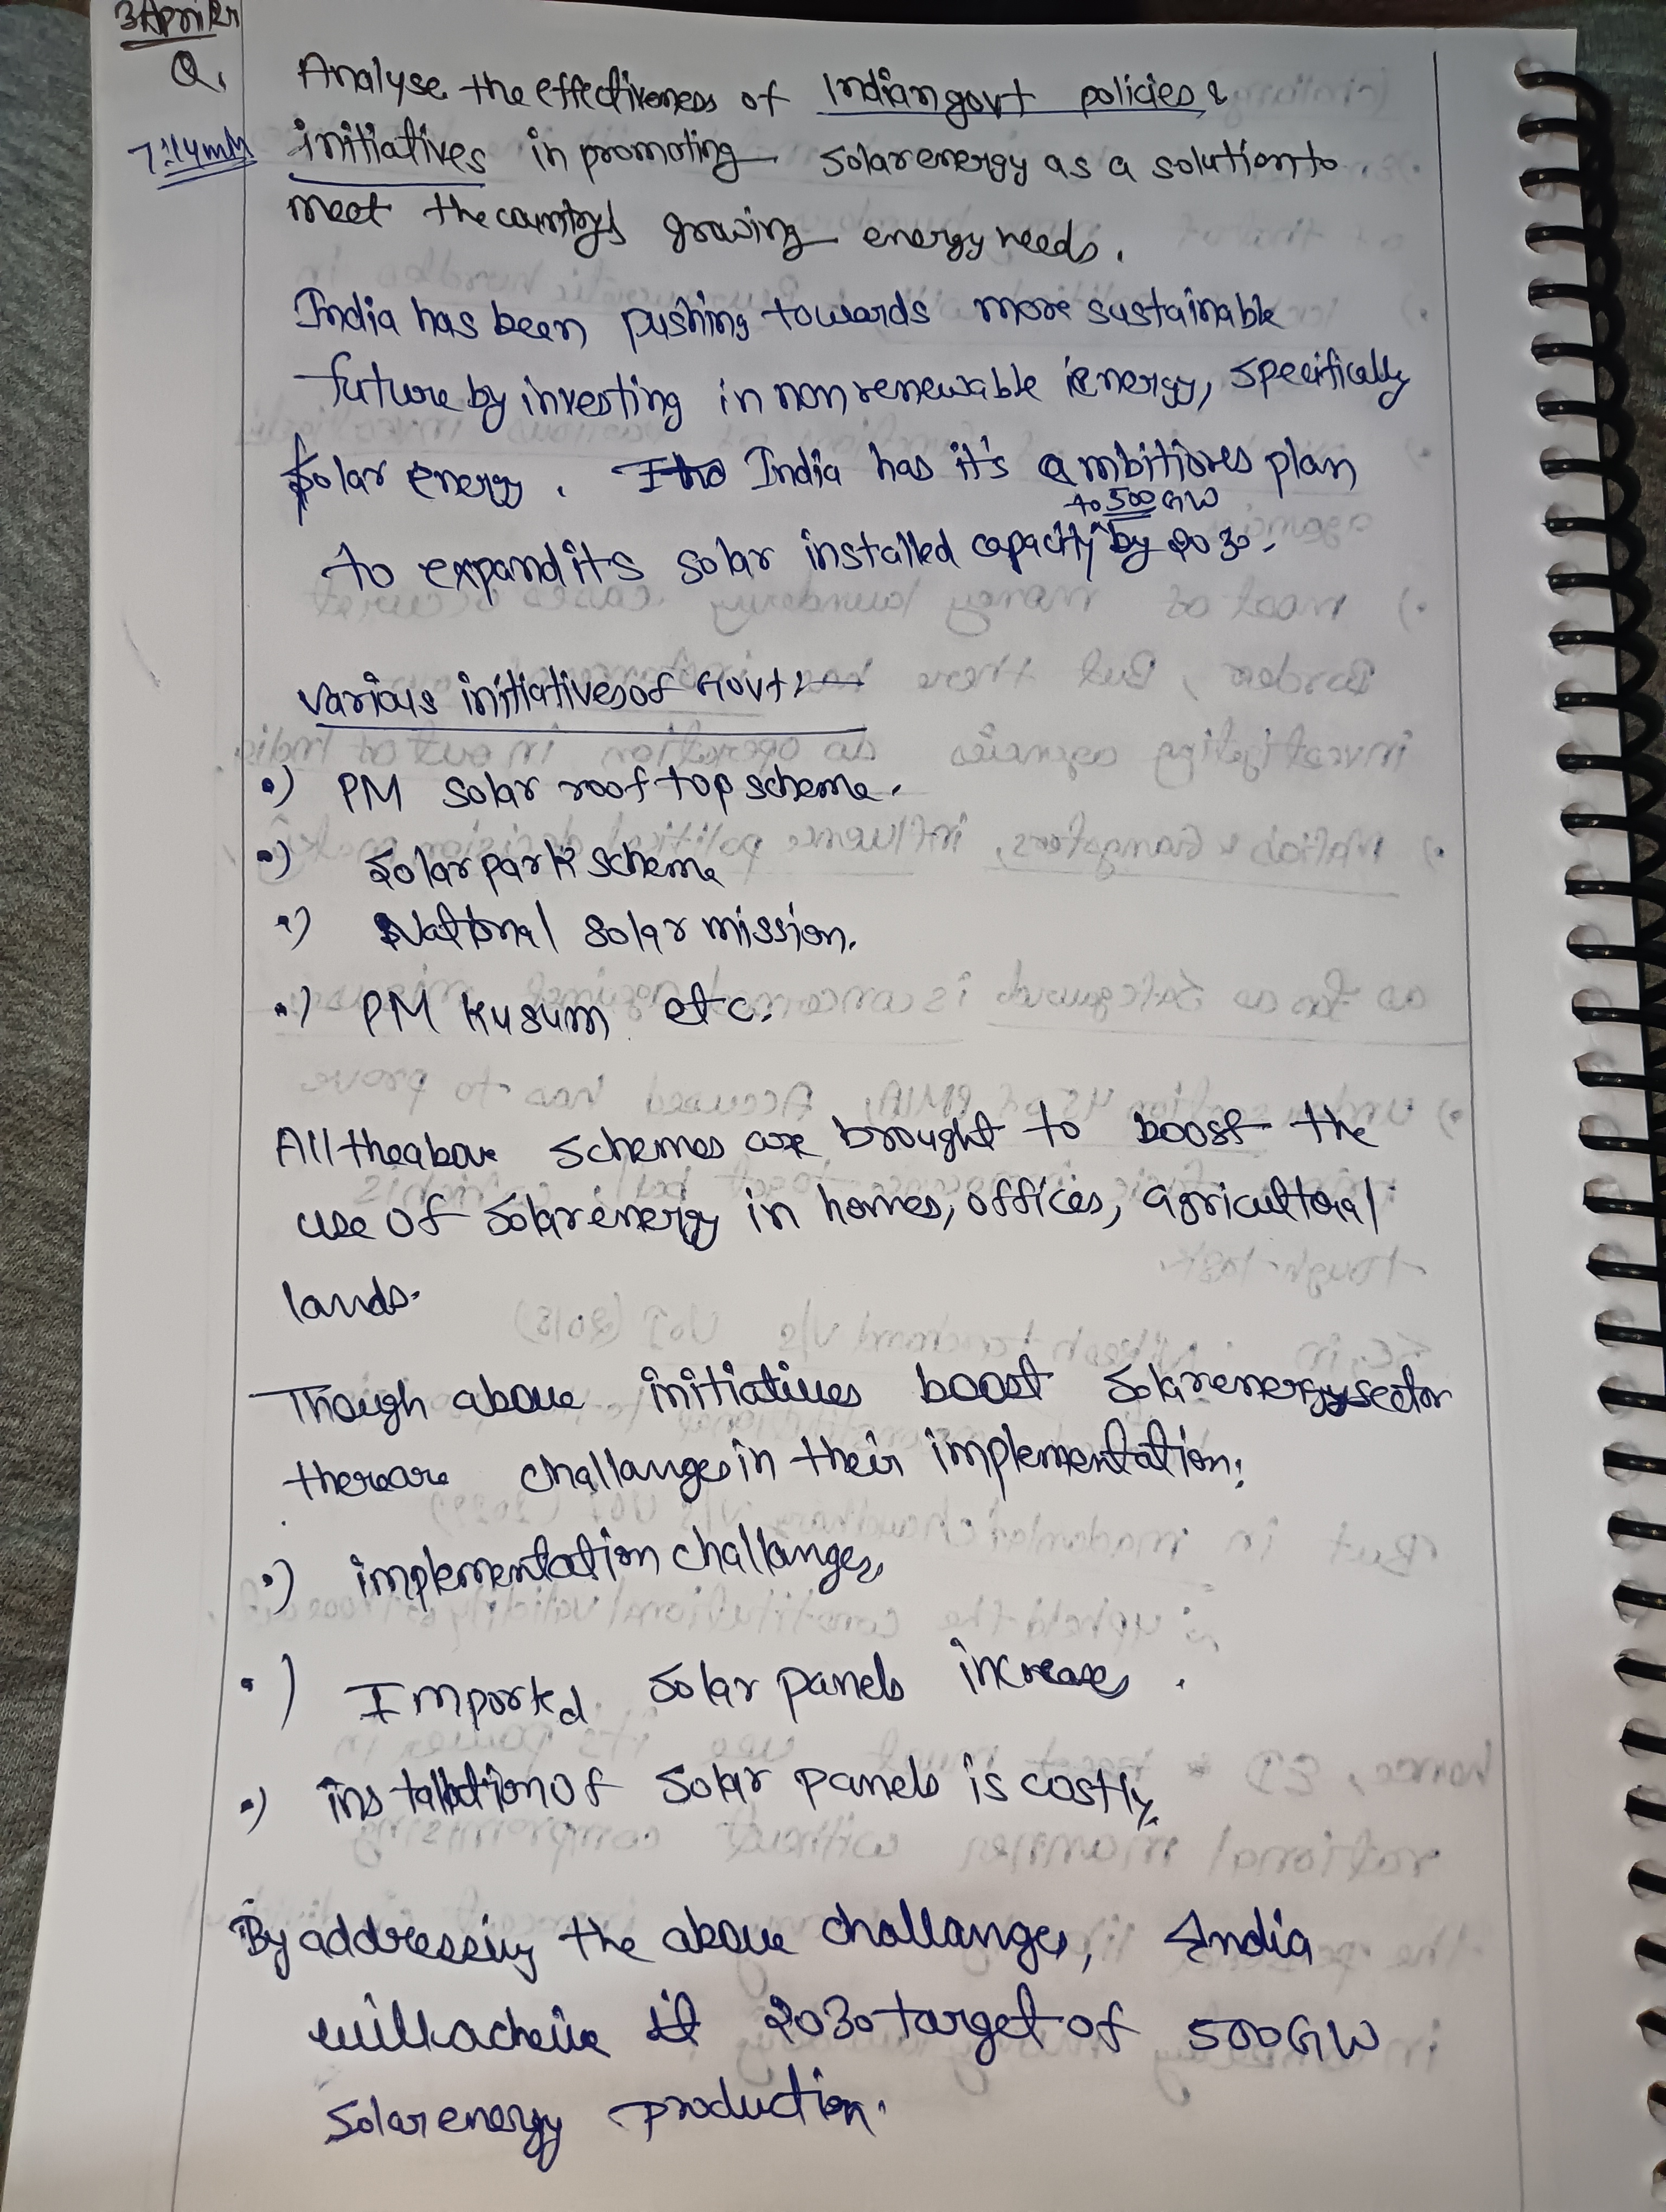 3 April
Q. Analyse the effectiveness of Indian govt policies &
7:14 initiatives in promoting solar energy as a solution to
meet the country's growing energy needs.
India has been pushing towards more sustainable
future by investing in non renewable energy, specifically
solar energy. India has it's ambitiores plan
to 500 GW
to expand its solar installed capacity ^ by 2030.
various initiatives of Govt :-
•) PM solar roof top scheme.
•) Solar park scheme
•) National solar mission.
•) PM Kusum etc.
All the above schemes are brought to boost the
use of solar energy in homes, offices, agricultural
lands.
Though above initiatives boost solar energy sector
there are challanges in their implementation:
•) implementation challanges
•) Imported solar panels increases.
•) installation of solar panels is costly.
By addressing the above challanges, India
will acheive it 2030 target of 500 GW
solar energy production.